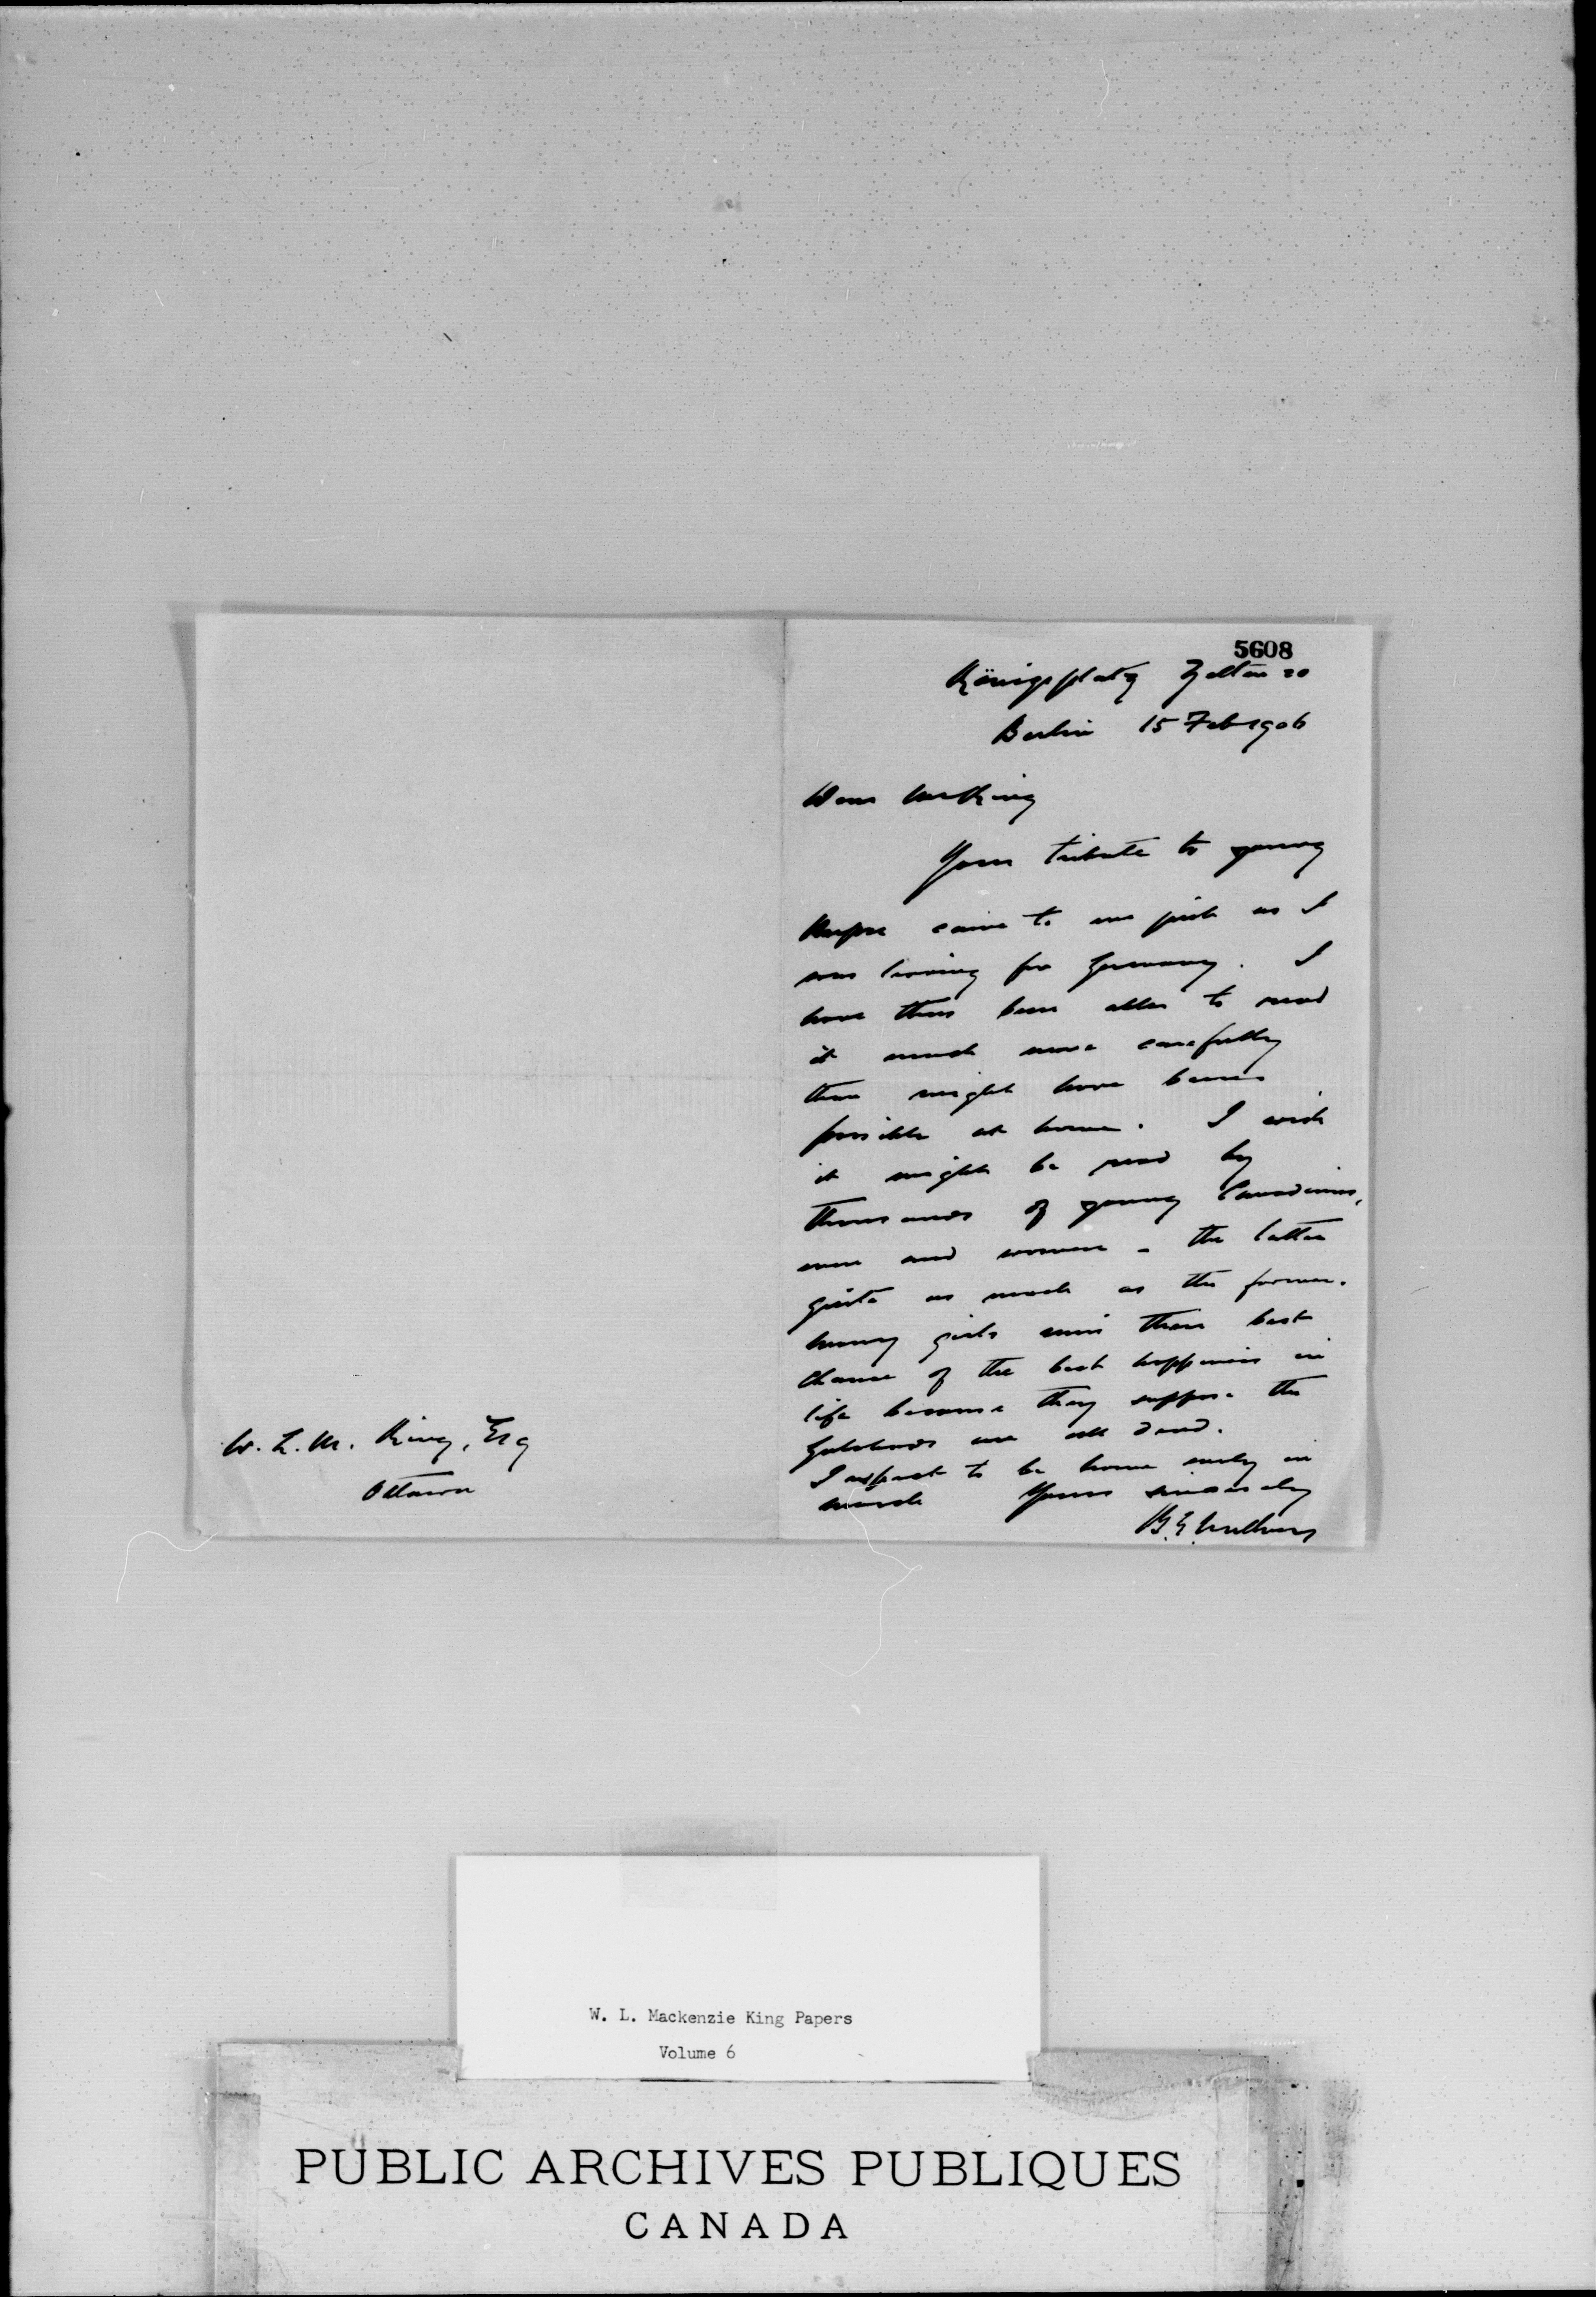 5608
Königsplatz Zelten 20
Berlin 15 Feb 1906
Dear Mr King
Your tribute to young
Harper came to me just as I
was leaving for Germany. I
have thus been able to read
it much more carefully
than might have been
possible at home. I wish
it might be read by
thousands of young Canadians,
men and women - the latter
quite as much as the former.
Many girls miss their best
chance of the best happiness in
life because they suppose the
Galahads are all dead.
I expect to be home early in
March Yours sincerely
W. L. M. King, Esq
Ottawa
W. L. Mackenzie King Papers
Volume 6
PUBLIC ARCHIVES PUBLIQUES
CANADA